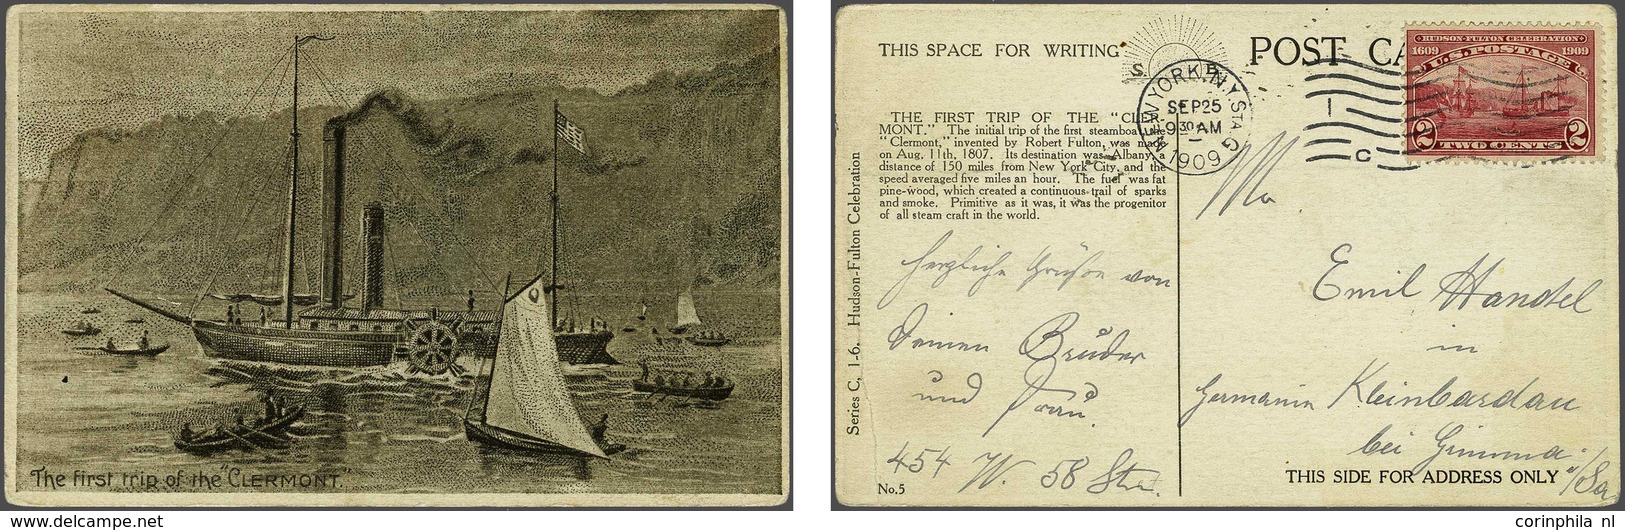 The first trip of the "CLERMONT."
THIS SPACE FOR WRITING
POST CA
HUDSON-FULTON CELEBRATION
1609 1909
U.S. POSTAGE
2 2
TWO CENTS
NEW YORK, N.Y. STA. G
SEP 25
9 30 AM
1909
C
THE FIRST TRIP OF THE "CLER-
MONT." The initial trip of the first steamboat, the
"Clermont," invented by Robert Fulton, was made
on Aug. 11th, 1807. Its destination was Albany, a
distance of 150 miles from New York City, and the
speed averaged five miles an hour. The fuel was fat
pine-wood, which created a continuous trail of sparks
and smoke. Primitive as it was, it was the progenitor
of all steam craft in the world.
Series C, 1-6. Hudson-Fulton Celebration
herzliche Grüße von
Deinen Bruder
und Frau
454 W. 58 Str.
No. 5
Emil Handel
in
Kleinbardau
Germanien
bei Grimma
i/Sa
THIS SIDE FOR ADDRESS ONLY
corinphila nl
www.delcampe.net